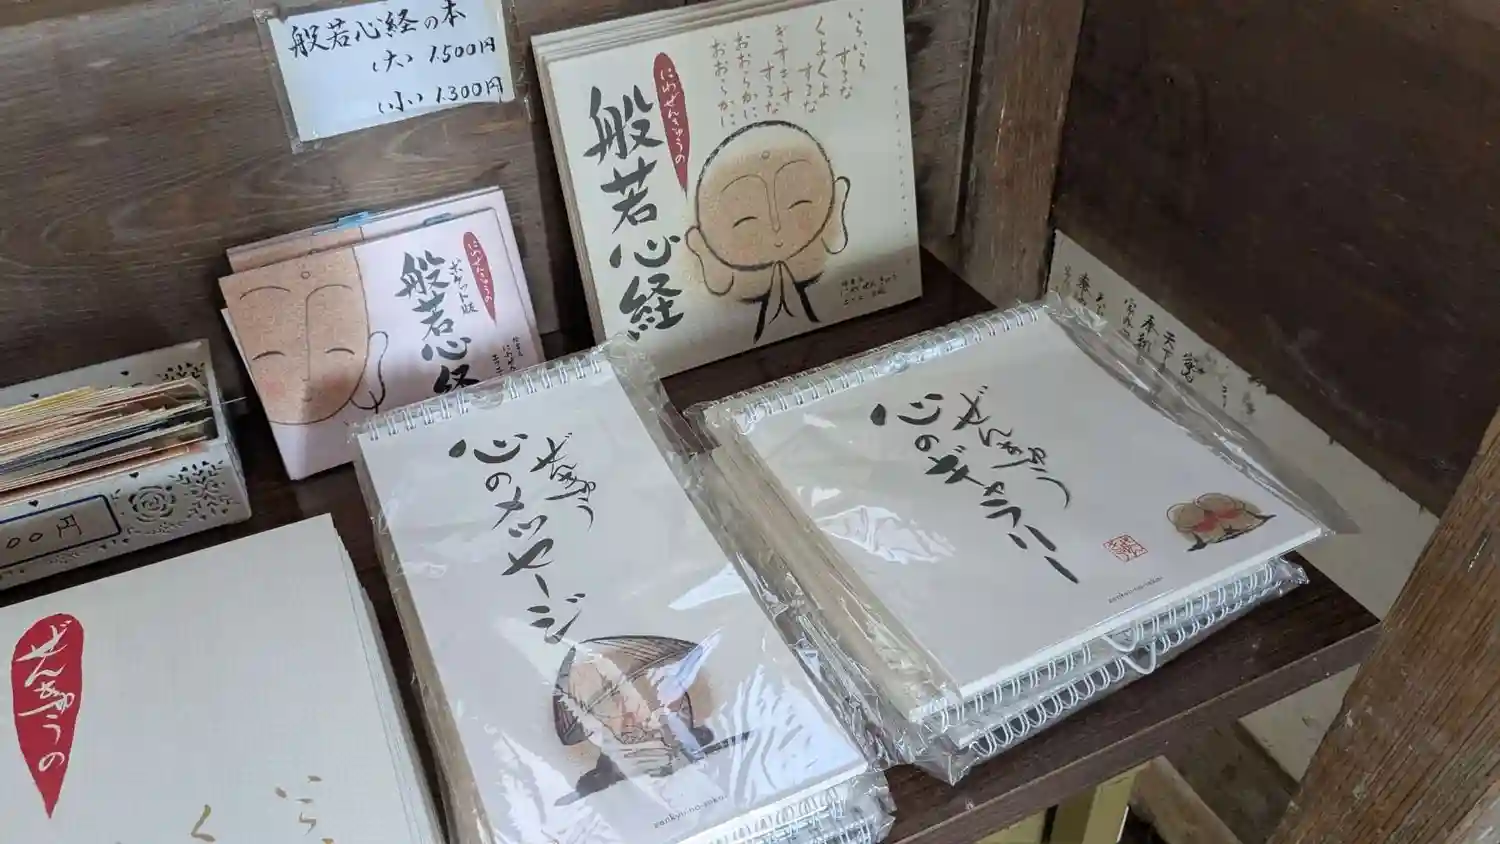 般若心経の本
(大) 1.500円
(小) 1.300円
いらいら
するな
くよくよ
するな
きすきす
するな
おおらかに
おおらかに
にわぜんきゅうの
般若心経
にわぜんきゅうの
ポケット版
般若心経
ぜんきゅう
心のメッセージ
zenkyu-no-sekai
ぜんきゅう
心のギャラリー
zenkyu-no-sekai
00円
ぜんきゅうの
いら
く